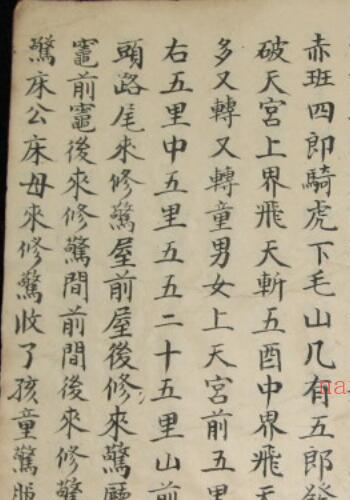 赤班四郎騎虎下毛山几有五郎發
破天宮上界飛天斬五酉中界飛天
多又轉又轉童男女上天宮前五里
右五里中五里五五二十五里山前
頭路尾來修驚屋前屋後修來驚廳
竈前竈後來修驚間前間後來修驚
驚床公床母來修驚收了孩童驚
na